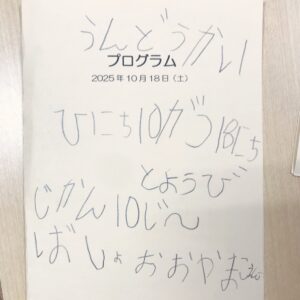 うんどうかい
プログラム
2025年10月18日（土）
ひにち10がつ18にち
とようび
じかん10じ〜
ばしょ おおやま